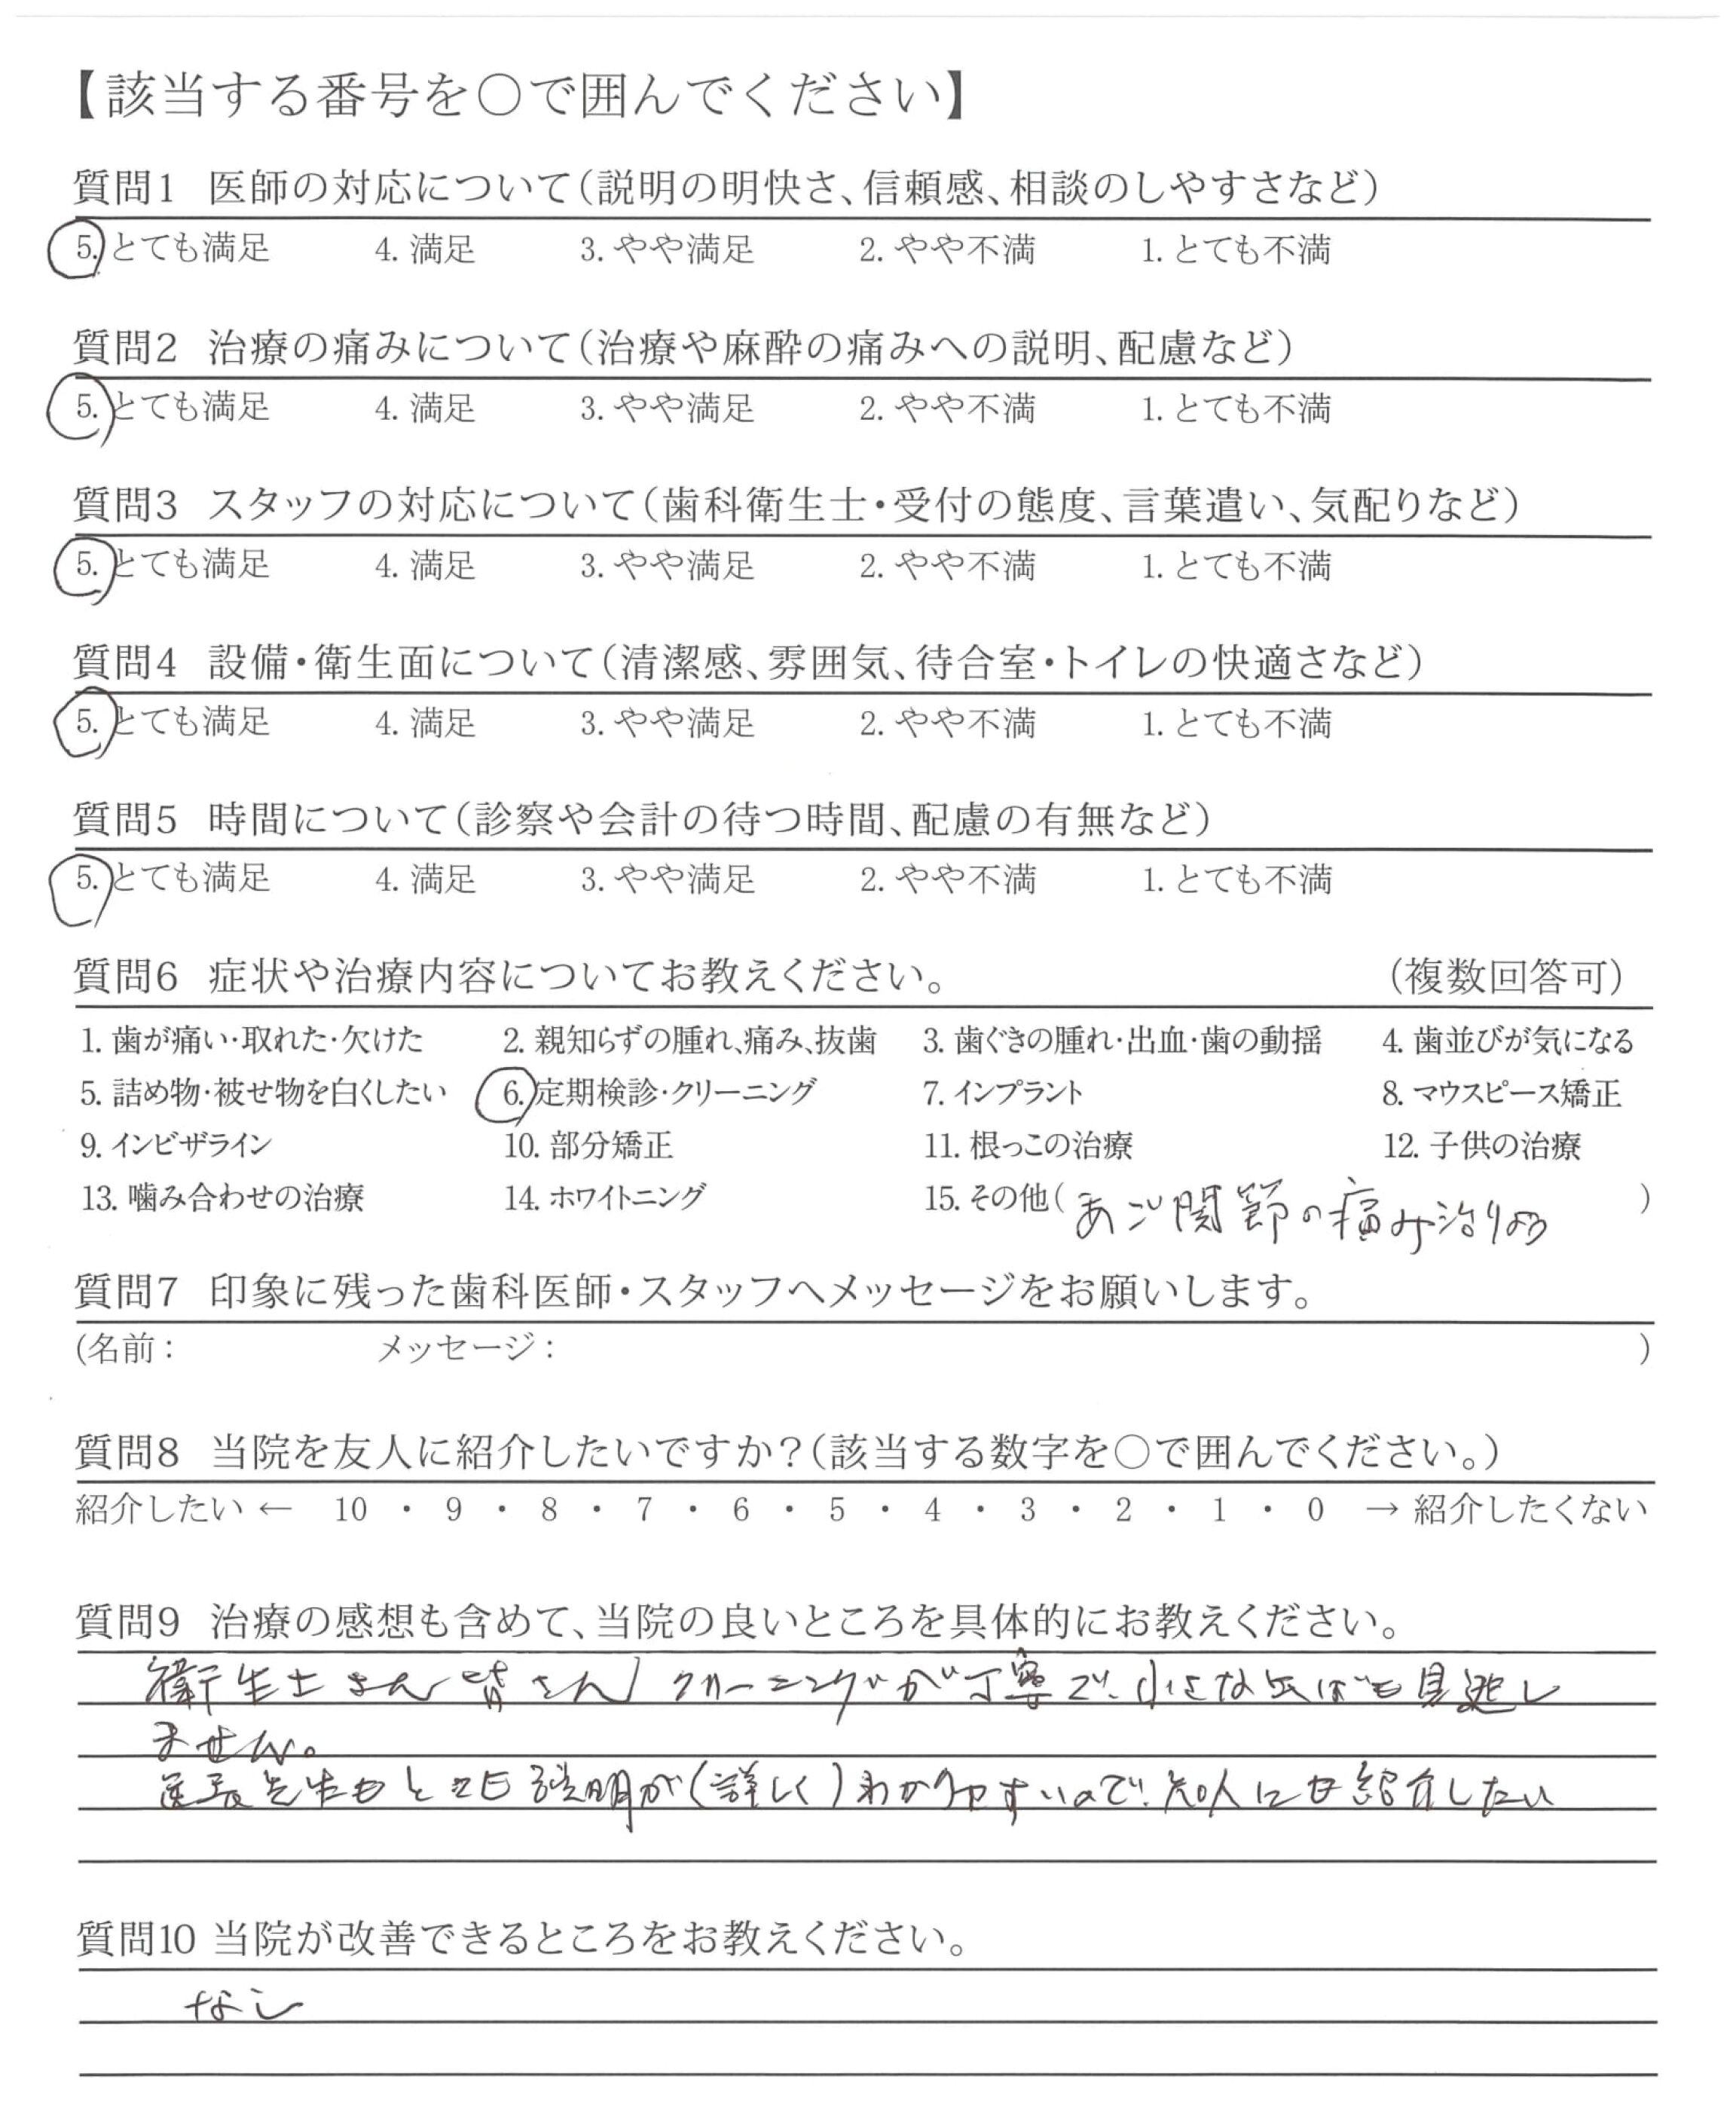 【該当する番号を○で囲んでください】
質問1 医師の対応について（説明の明快さ、信頼感、相談のしやすさなど）
5. とても満足 4. 満足 3. やや満足 2. やや不満 1. とても不満
質問2 治療の痛みについて（治療や麻酔の痛みへの説明、配慮など）
5. とても満足 4. 満足 3. やや満足 2. やや不満 1. とても不満
質問3 スタッフの対応について（歯科衛生士・受付の態度、言葉遣い、気配りなど）
5. とても満足 4. 満足 3. やや満足 2. やや不満 1. とても不満
質問4 設備・衛生面について（清潔感、雰囲気、待合室・トイレの快適さなど）
5. とても満足 4. 満足 3. やや満足 2. やや不満 1. とても不満
質問5 時間について（診察や会計の待つ時間、配慮の有無など）
5. とても満足 4. 満足 3. やや満足 2. やや不満 1. とても不満
質問6 症状や治療内容についてお教えください。 （複数回答可）
1. 歯が痛い・取れた・欠けた 2. 親知らずの腫れ、痛み、抜歯 3. 歯ぐきの腫れ・出血・歯の動揺 4. 歯並びが気になる
5. 詰め物・被せ物を白くしたい 6. 定期検診・クリーニング 7. インプラント 8. マウスピース矯正
9. インビザライン 10. 部分矯正 11. 根っこの治療 12. 子供の治療
13. 噛み合わせの治療 14. ホワイトニング 15. その他（あご関節の痛み治りょう）
質問7 印象に残った歯科医師・スタッフへメッセージをお願いします。
(名前： メッセージ： )
質問8 当院を友人に紹介したいですか？（該当する数字を○で囲んでください。）
紹介したい ← 10 ・ 9 ・ 8 ・ 7 ・ 6 ・ 5 ・ 4 ・ 3 ・ 2 ・ 1 ・ 0 → 紹介したくない
質問9 治療の感想も含めて、当院の良いところを具体的にお教えください。
衛生士さん皆さんクリーニングが丁寧で、小さな虫ばも見逃し
ません。
医長先生もとても説明が（詳しく）わかりやすいので、知人にも紹介したい
質問10 当院が改善できるところをお教えください。
なし